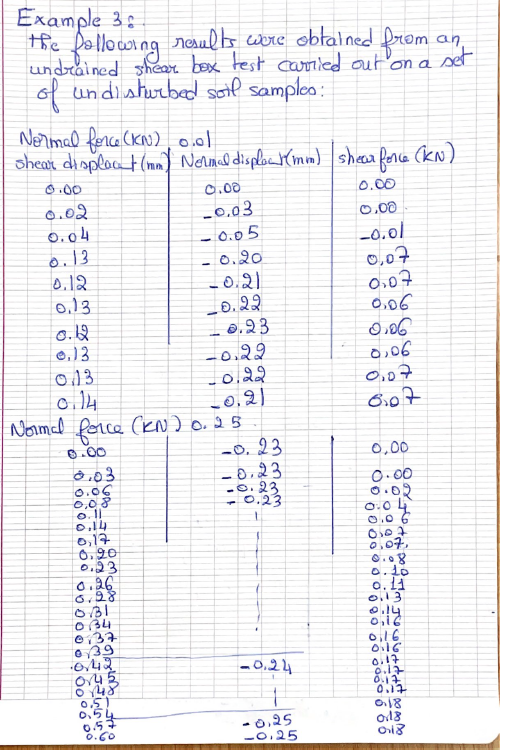 Example 3:
the following results were obtained from an
undrained shear box test carried out on a set
of undisturbed soil samples:
Normal force (KN) 0.01
shear displacut (mm) Normal displacut (mm) shear force (KN)
0.00 0.00 0.00
0.02 -0.03 0.00
0.04 -0.05 -0.01
0.13 -0.20 0,07
0.12 -0.21 0,07
0,13 -0.22 0,06
0.12 -0.23 0,06
0,13 -0.22 0,06
0,13 -0.22 0,07
0,14 -0.21 0,07
Normal force (KN) 0.25
0.00 -0.23 0,00
0.03 -0.23 0.00
0.06 -0.23 0.02
0.08 -0.23 0.04
0.11 0.06
0.14 0,07
0,17 0,07.
0,20 0.08
0.23 0.10
0,26 0.11
0.28 0.13
0,31 0,14
0,34 0,16
0,37 0,16
0,39 0,16
0,42 -0.24 0,17
0,45 0,17
0,48 0,17
0,51 0,17
0.54 0,18
0.57 -0.25 0,18
0.60 -0.25 0,18